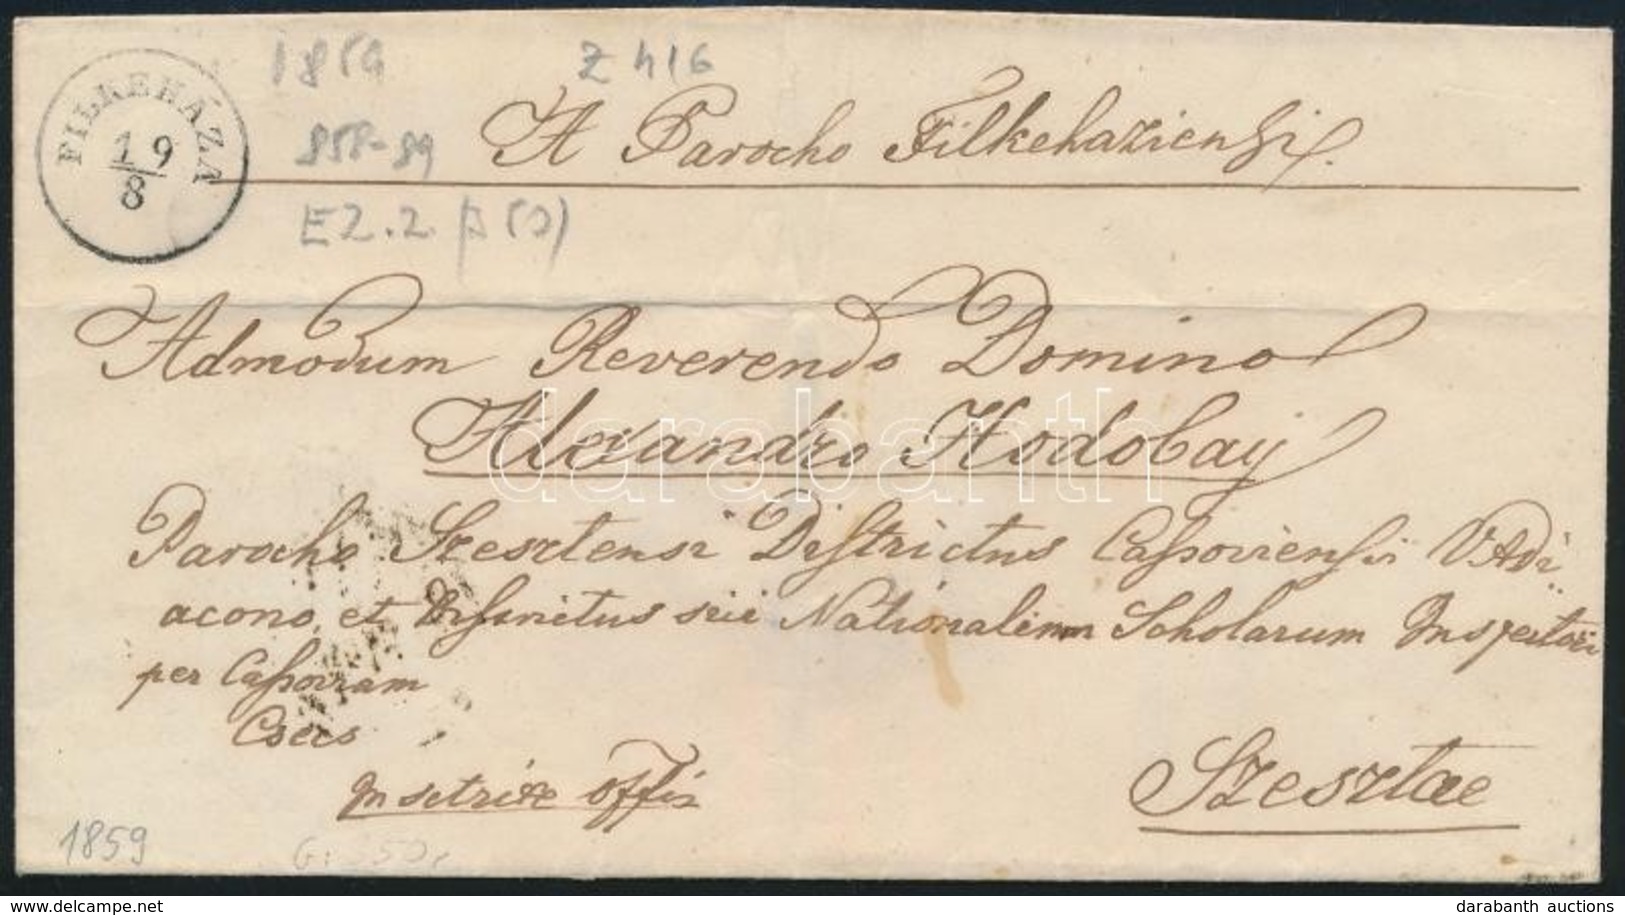 FILKEHÁZA
19
8
1859
Z 416
858-89
A Parocho Filkehaziensi.
Admodum Reverendo Domino
Alexandro Hodobay
Parocho Szesztensi Districtus Cassoviensis VADi
acono, et Nationalium Scholarum Inspectori
per Cassoviam
Csecs
offi
Szesztae
1859
darabanth
www.delcampe.net
darabanth auctions